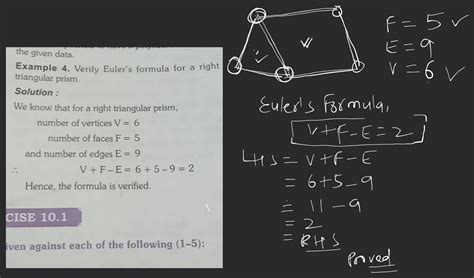 the given data.
Example 4. Verify Euler's formula for a right
triangular prism.
Solution :
We know that for a right triangular prism,
number of vertices V = 6
number of faces F = 5
and number of edges E = 9
∴ V + F – E = 6 + 5 – 9 = 2
Hence, the formula is verified.
CISE 10.1
iven against each of the following (1–5):
F = 5 ✓
E = 9
V = 6 ✓
Euler's Formula,
V+F-E=2
LHS = V+F-E
= 6+5-9
= 11-9
= 2
= RHS
Proved